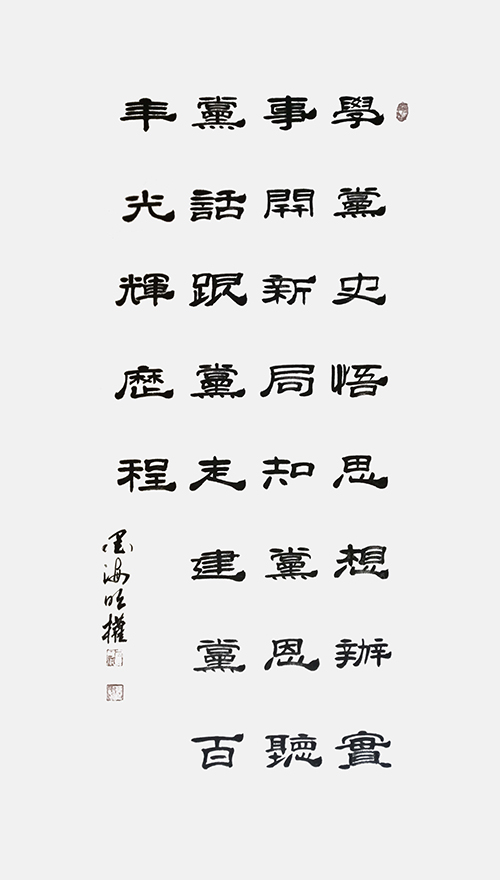 學黨史悟思想辦實
事開新局知黨恩聽
黨話跟黨走建黨百
年光輝歷程
墨海